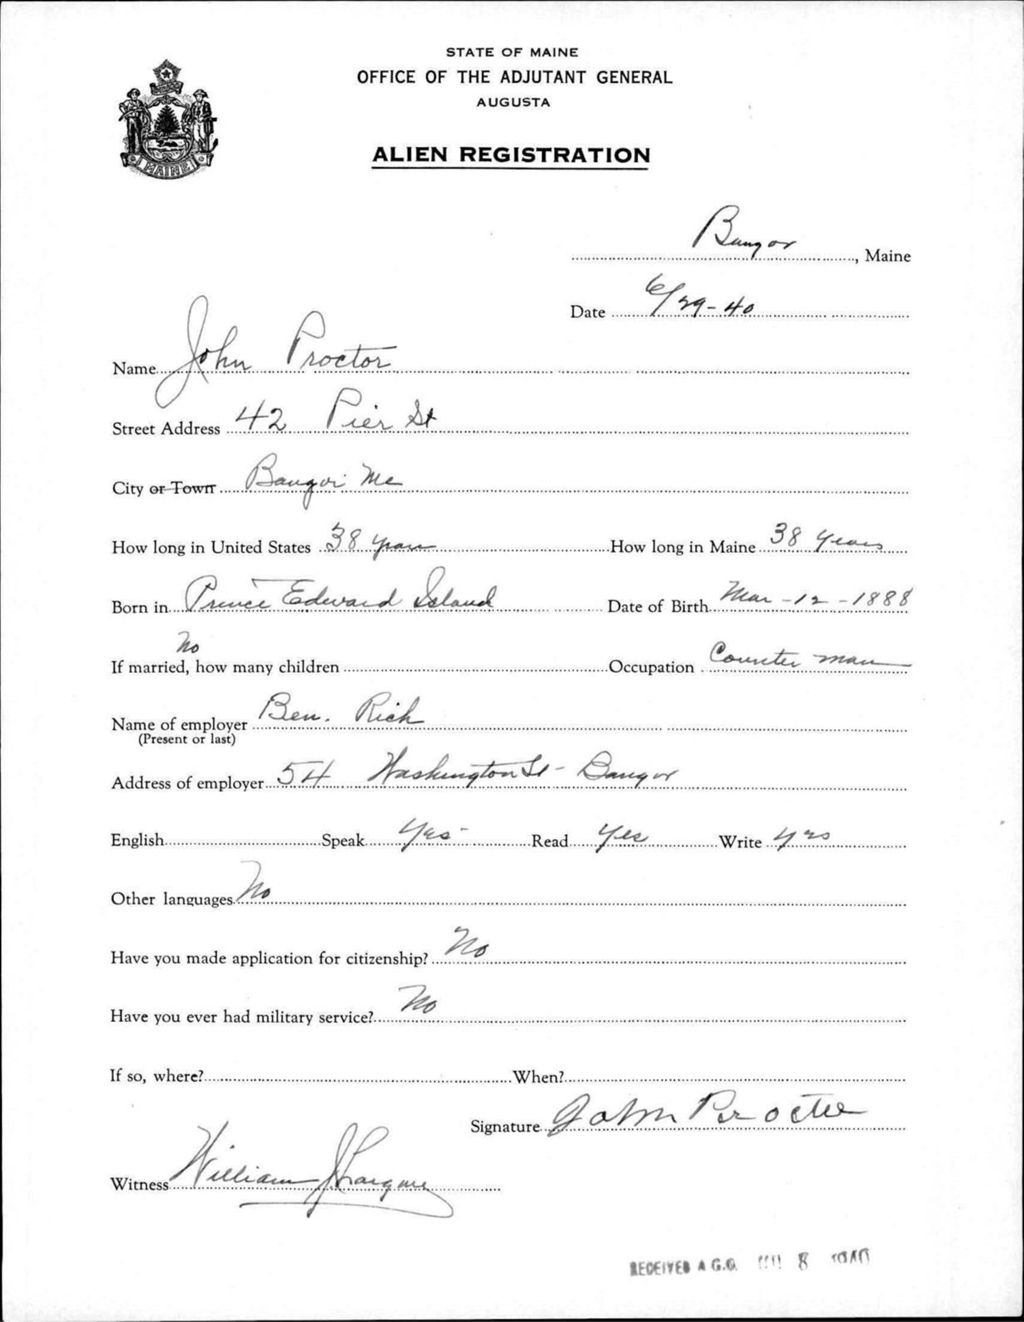 STATE OF MAINE
OFFICE OF THE ADJUTANT GENERAL
AUGUSTA
MAINE
ALIEN REGISTRATION
Bangor, Maine
Date 6/29-40
Name John Proctor
Street Address 42 Pier St
City or Town Bangor Me
How long in United States 38 years How long in Maine 38 Years
Born in Prince Edward Island Date of Birth Mar-12-1888
No
If married, how many children Occupation Counter man
Name of employer Ben. Rich
(Present or last)
Address of employer 54 Washington St - Bangor
English Speak Yes Read Yes Write Yes
Other languages No
Have you made application for citizenship? No
Have you ever had military service? No
If so, where? When?
Signature John Procter
Witness William
RECEIVED A.G.O. 8 1940